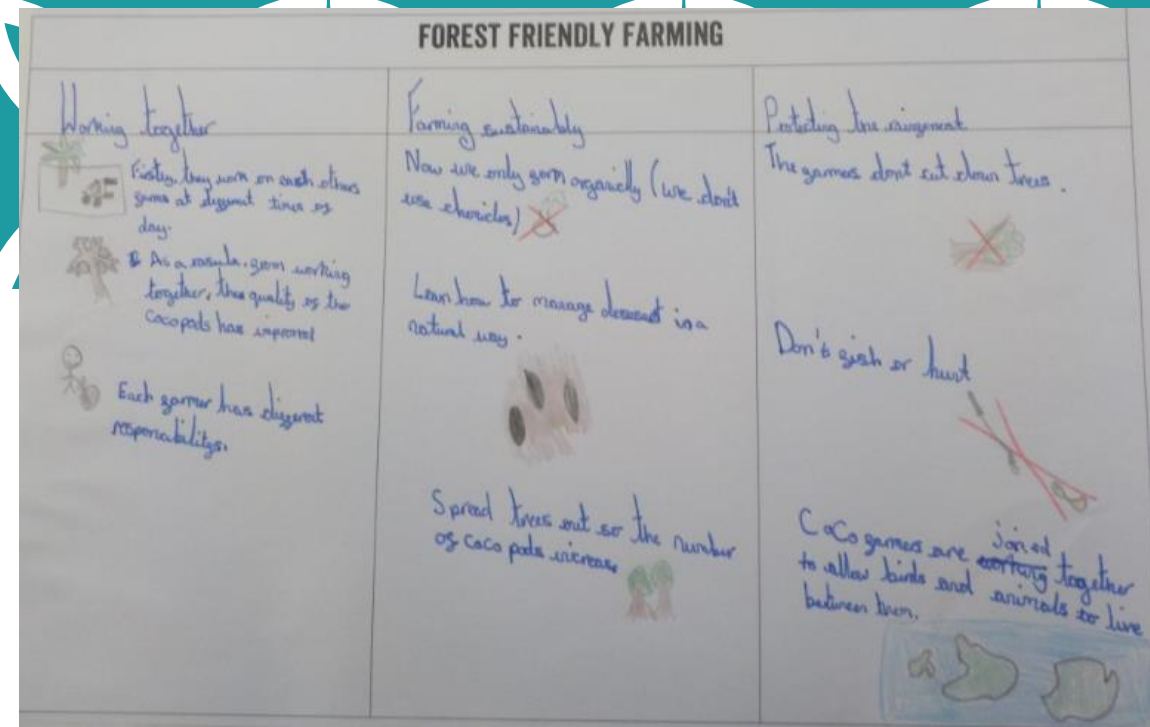 FOREST FRIENDLY FARMING
Working together
Firstly, they work on each others
farms at different times of
day.
As a results. from working
together, the quality of the
Cocopods has improved
Each farmer has different
responsibilitys.
Farming sustainably
Now we only farm organicly (we don't
use chemicles)
Lean how to manage in a
natural way.
Spread trees out so the number
of coco pods increase
Protecting the
The farmers dont cut down trees.
Don't fish or hunt
CoCo farmers are joined together
to allow birds and animals to live
between them.